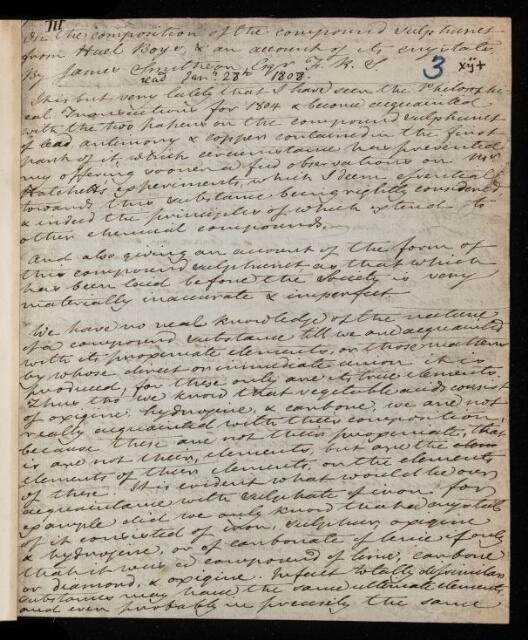 III
On the composition of the compound sulphuret
from Huel Boys, & an account of its crystals.
By James Smithson Esqr F. R. S
read Jany 28th 1808.
3
xij+
It is but very lately that I have seen the Philosophi
cal Transactions for 1804 & become acquainted
with the two papers on the compound sulphuret
of lead antimony & copper contained in the first
part of it, which circumstance has prevented
my offering sooner a few observations on Mr
Hatchetts experiments, which I deem essential
towards this substance being rightly considered
& indeed the principles of which extend to
other chemical compounds.
And also giving an account of the form of
this compound sulphuret, as that which
has been laid before the Society is very
materially inaccurate & imperfect.
We have no real knowledge of the nature
of a compound substance till we are acquainted
with its proximate elements, or those matters
by whose direct or immediate union it is
produced, for these only are its true elements.
Thus tho' we know that vegetable acids consist
of oxigine, hydrogene, & carbone, we are not
really acquainted with their composition,
because these are not their proximate, that
is are not their elements, but are the
elements of their elements, or the elements
of these. It is evident what would be our
acquaintance with sulphate of iron for
example did we only know that a crystal
of it consisted of iron, sulphur, oxigine
& hydrogene, or of carbonate of lime if only
that it was a compound of lime, carbone
or diamond, & oxigine. In fact totally dissimilar
substances may have the same ultimate elements,
and even probably in precisely the same